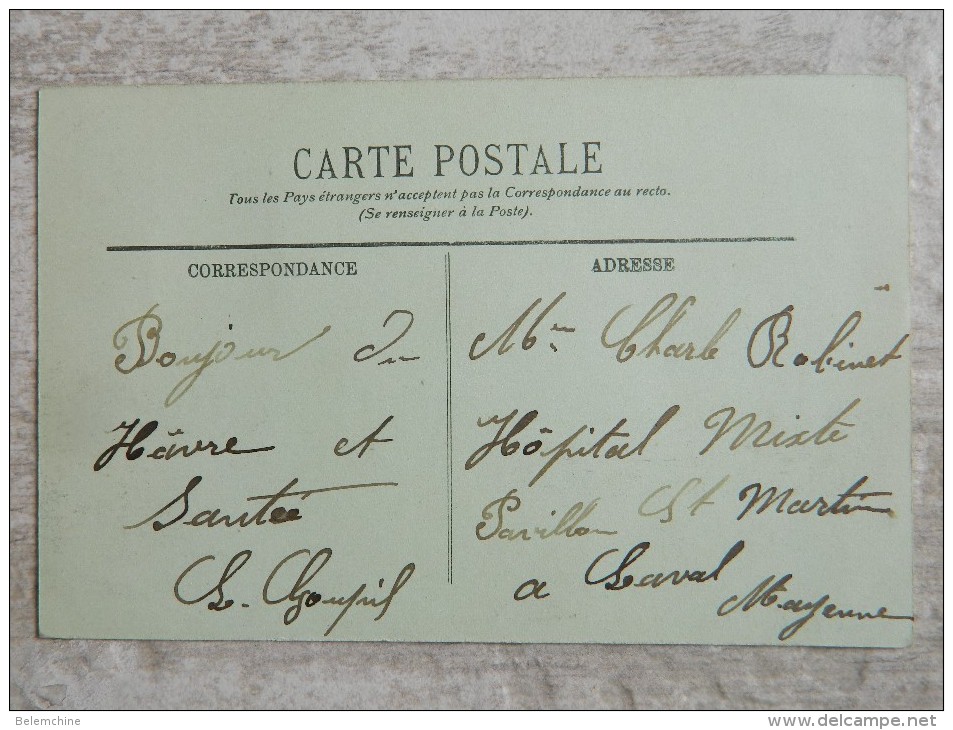 CARTE POSTALE
Tous les Pays étrangers n'acceptent pas la Correspondance au recto.
(Se renseigner à la Poste).
CORRESPONDANCE
Bonjour du
Hâvre et
Santée
L. Goupil
ADRESSE
Mme Charle Robinet
Hôpital Mixte
Pavillon St Martin
a Laval
Mayenne
Belemchine
www.delcampe.net